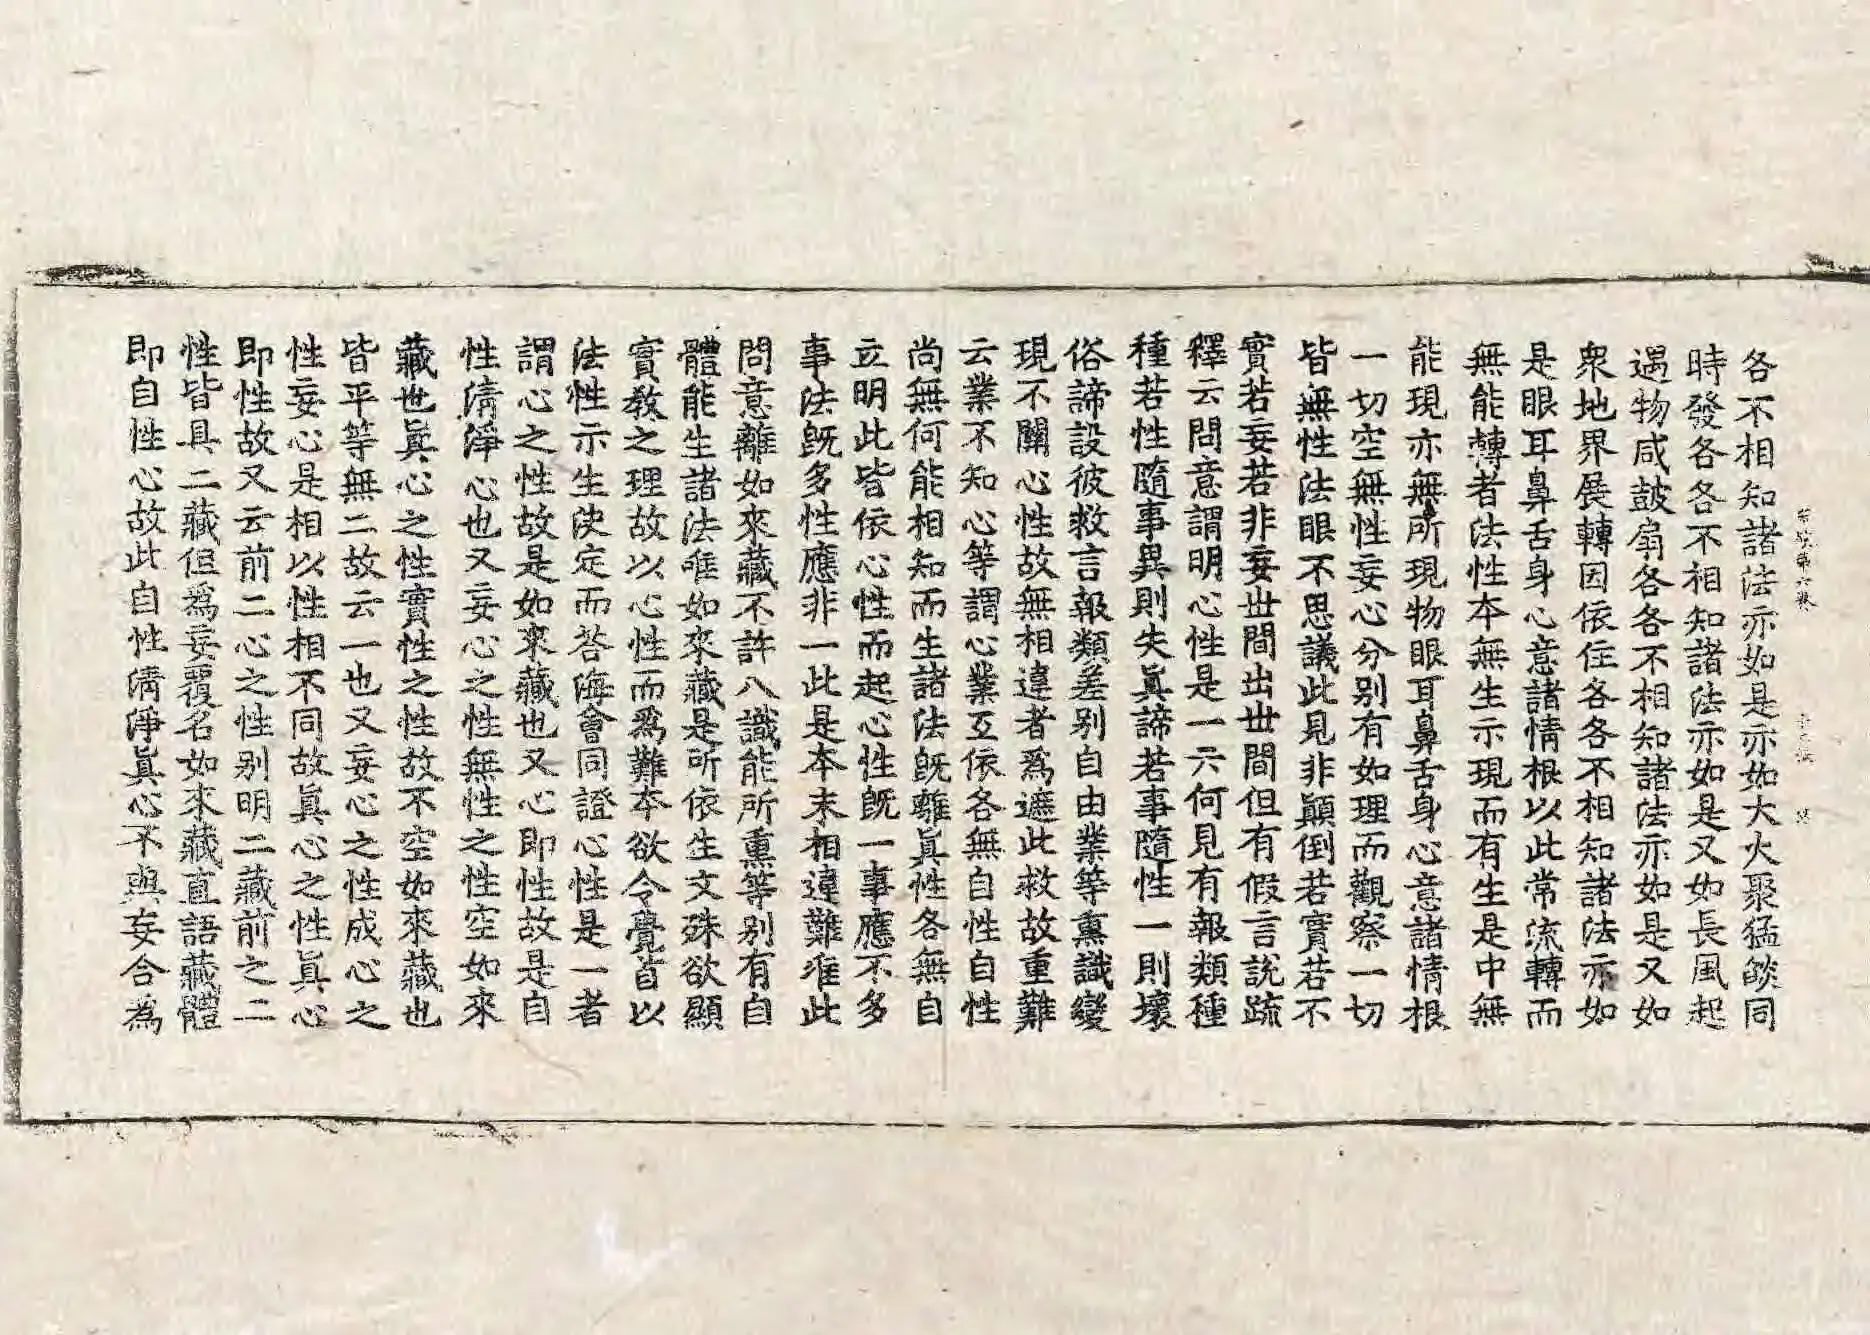 各不相知諸法亦如是亦如大火聚猛燄同
時發各各不相知諸法亦如是又如長風起
遇物咸鼓扇各各不相知諸法亦如是又如
衆地界展轉因依住各各不相知諸法亦如
是眼耳鼻舌身心意諸情根以此常流轉而
無能轉者法性本無生示現而有生是中無
能現亦無所現物眼耳鼻舌身心意諸情根
一切空無性妄心分别有如理而觀察一切
皆無性法眼不思議此見非顛倒若實若不
實若妄若非妄世間出世間但有假言說䟽
釋云問意謂明心性是一云何見有報類種
種若性隨事異則失眞諦若事隨性一則壞
俗諦設彼救言報類差别自由業等熏識變
現不關心性故無相違者爲遮此救故重難
云業不知心等謂心業互依各無自性自性
尚無何能相知而生諸法旣離眞性各無自
立明此皆依心性而起心性旣一事應不多
事法旣多性應非一此是本末相違難准此
問意離如來藏不許八識能所熏等别有自
體能生諸法唯如來藏是所依生文殊欲顯
實教之理故以心性而爲難本欲令覺首以
法性示生決定而荅海會同證心性是一者
謂心之性故是如來藏也又心即性故是自
性清淨心也又妄心之性無性之性空如來
藏也眞心之性實性之性故不空如來藏也
皆平等無二故云一也又妄心之性成心之
性妄心是相以性相不同故眞心之性眞心
即性故又云前二心之性别明二藏前之二
性皆具二藏但爲妄覆名如來藏直語藏體
即自性心故此自性清淨眞心不與妄合爲